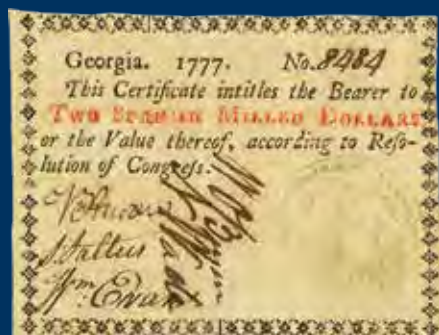 Georgia. 1777. No. 8484
This Certificate intitles the Bearer to
TWO SPANISH MILLED DOLLARS
or the Value thereof, according to Reso-
lution of Congress.
Wm: Evans